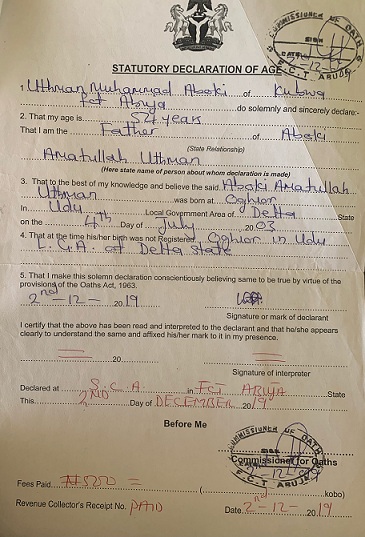 COMMISSIONER OF OATHS
SIGN
DATE
F.C.T. ABUJA
STATUTORY DECLARATION OF AGE
1 Uthman Muhammad Aboki of Kubwa
fct Abuja do solemnly and sincerely declare:-
2. That my age is 54 years
That I am the Father of Aboki
(State Relationship)
Amatullah Uthman
(Here state name of person about whom declaration is made)
3. That to the best of my knowledge and believe the said Aboki Amatullah
Uthman was born at Oghior
In Udu Local Government Area of Delta State
on the 4th Day of July 2003
4. That at the time his/her birth was not Registered Oghior in Udu
L.G.A. of Delta State
5. That I make this solemn declaration conscientiously believing same to be true by virtue of the
provisions of the Oaths Act, 1963.
2nd -12- 2019
Signature or mark of declarant
I certify that the above has been read and interpreted to the declarant and that he/she appears
clearly to understand the same and affixed his/her mark to it in my presence.
20
Signature of interpreter
Declared at S.C.A in FCT ABUJA State
This 2ND Day of DECEMBER 2019
Before Me
COMMISSIONER OF OATHS
Commissioner for Oaths
F.C.T. ABUJA
Fees Paid ( kobo)
Revenue Collector's Receipt No. PAID Date 2nd -12- 2019